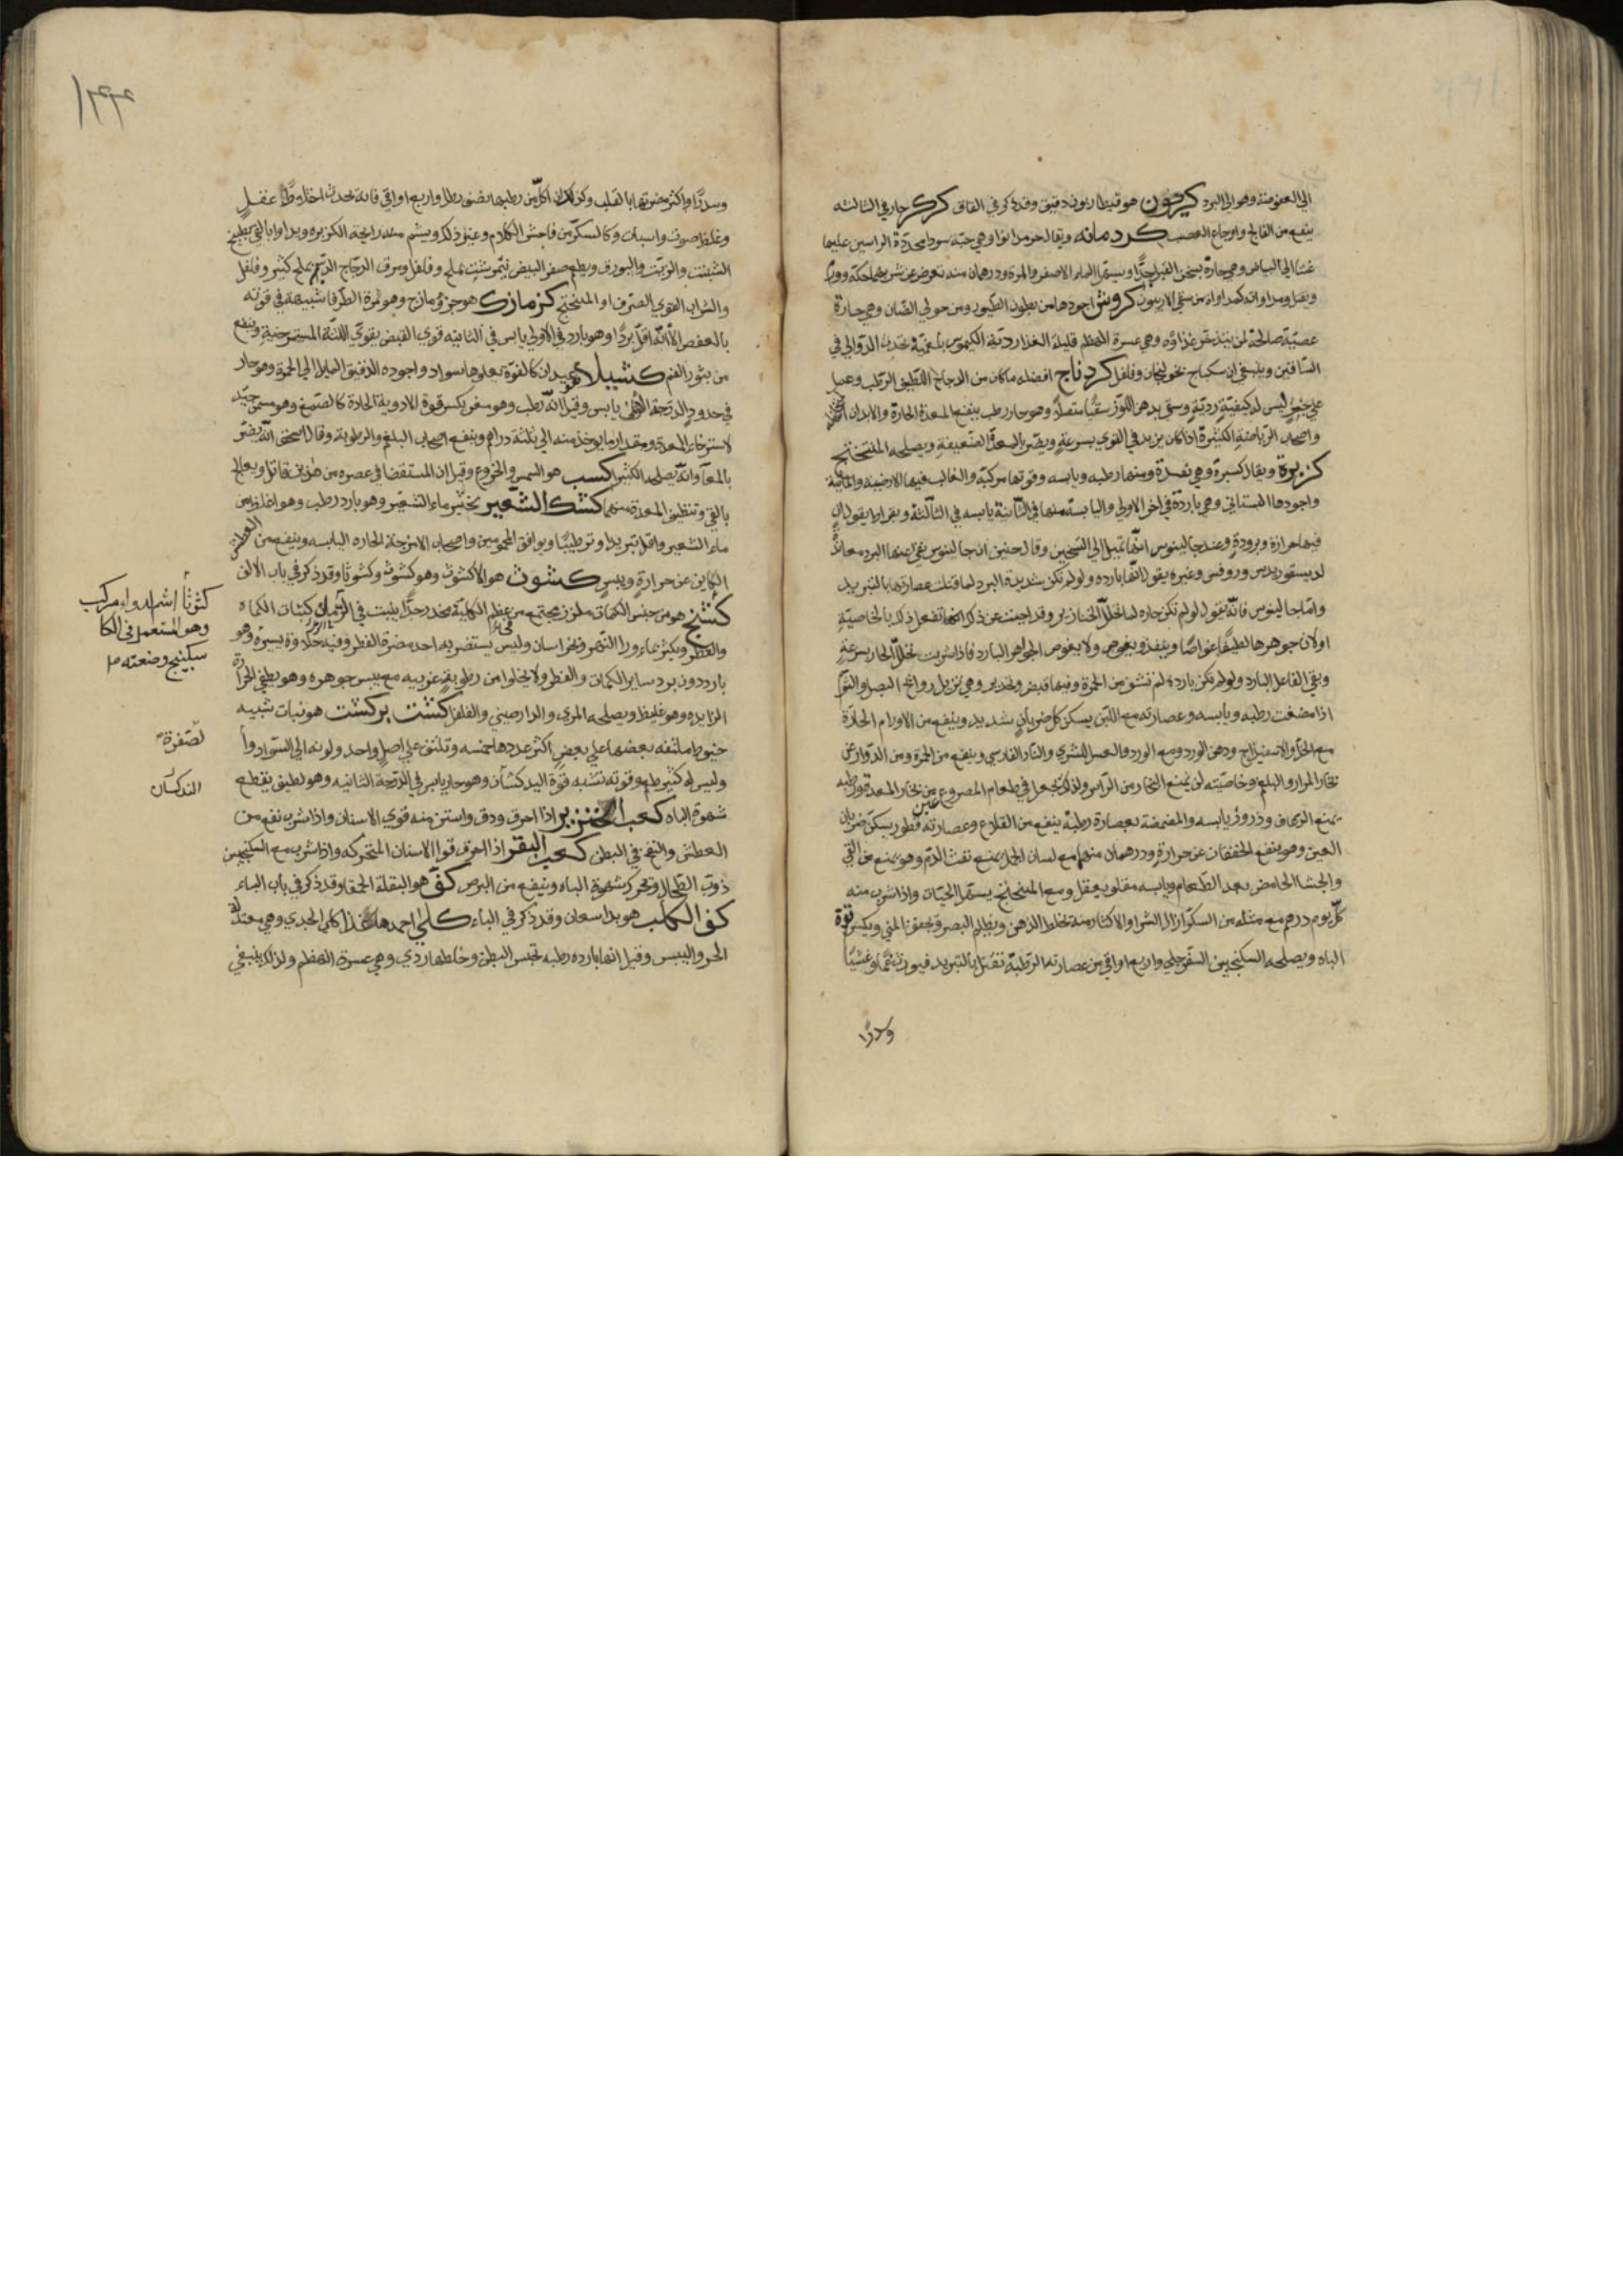 الي العفوصة وهو الي البرد كيرحون هو قنطاريون دقيق وقد ذكر في القاف كركر حار في الثالثه
ينفع من الفالج واوجاع العصب كردمانه ويقال حرمدانوا وهي حبّة سودا محدّدة الراسين عليها
غشا الي البياض وهي حارّة يسخن القبر جدًّا ويسهل الماء الاصفر والمرة ودرهمان منه تعرض عن شربهما حكّة وورم
ويقتل ومداواته كمداواة من سقي الافربيون كروش اجودها من بطون الطيور ومن حولي الضان وهي حارة
عصبيّة صالحة لمن يتدخن غذاؤه وهي عسرة الهضم قليلة الغذا رديّة الكيموس بلغميّة وتحدث الدوالي في
الساقين وينبغي ان سكباج بخولنجان وفلفل كردناج افضله ماكان من الدجاج اللطيف الرطب وعمل
علي جمر ليس له كيفية رديّة وسقي بدهن اللوز سقيًا متصلا وهو حار رطب ينفع المعدة الحارة والابدان
واصحاب الرياضة الكثيرة اذا كان يزيد في القوي بسرعة ويضر بالمعدة الضعيفة ويصلحه المفتختج
كزبرة ويقال كسبرة وهي نقدة ومنها رطبه ويابسه وقوتها مركبة والغالب فيها الارضية والمائية
واجودها البستاني وهي باردة في اخر الاولي واليابسة منها في الثانية يابسه في الثالثة وبقراط يقول ان
فيها حرارة وبرودة وعند جالينوس انها تميل الي التسخين وقال حنين ان جالينوس نفي عنها البرد معاندة
لديسقوريدس وروفس وغيره يقول انها بارده ولو لم تكن شديدة البرد لما قتلت عصارتها بالتبريد
وامّا جالينوس فانّه يقول لو لم تكن حاره لما حللت الخنازير وقد اجبت عن ذلك انها تفعل ذلك بالخاصيّة
او لان جوهرها لطيفًا غواصًا وينفذ ويغوص ولا يغوص الجواهر البارد فاذا شربت تحلل الحار بسرعة
وبقي الفاعل البارد ولو لم تكن باردة لم تشف من الحمرة وفيها قبض وتخدير وهي تزيل روائح البصل والثوم
اذا مضغت رطبه ويابسه وعصارته مع اللبن يسكن كل ضربان شديد وينفع من الاورام الحارّة
مع الخل والاسفيداج ودهن الورد ومع الورد والعسل للشري والنار الفارسي وينفع من الحمرة ومن الدوار عن
بخار المرار والبلغم وخاصّيته ان يمنع البخار من الراس ولذلك تجعل في طعام المصروع من بخار المعدة ورطبه
يمنع الرعاف وذرور يابسه والمضمضة بعصارة رطبه ينفع من القلاع وعصارته قطور يسكن ضربان
العين وهو ينفع الخفقان عن حرارة ودرهمان منها مع لسان الحمل يمنع نفث الدم وهو يمنع من القي
والجشا الحامض بعد الطعام ويابسه مقلو يعقل ومع المنبختج يسهل الحيات واذا شرب منه
كل يوم درهم مع مثله من السكر ازال الشرا والاكثار منه تخلط الذهن ويظلم البصر ويجفف المني ويكسر قوة
الباه ويصلحه السكنجبين السفرجلي واربع اواقي من عصارته الرطبة تقتل بالتبريد فيورث غمًّا وغشيًا
وسدرًا
وسدرًا واكثر مضرتها بالقلب وكذلك ان اكل من رطبها نصف رطل واربع اواقي فانه يحدث اختلاط عقل
وغلظ صوت واسبات وكالسكر من فاحش الكلام وغير ذلك ويشم منه رايحة الكزبره ويداوا بالقي بطبيخ
الشبت والزيت والبورق ويطعم صفر البيض نيمرشت بملح وفلفل ومرق الدجاج الدسم بملح كثير وفلفل
والشراب القوي الصرف او المنبختج كزمازك هو جزومازج وهو ثمرة الطرفا شبيهة في قوته
بالعفص الا انّه اقل بردًا وهو بارد في الاولي يابس في الثانيه قوي القبض يقوي اللثة المسترخية وينفع
من بثور الفم كشيلا عيدان كالفوّة يعلوها سواد واجوده الدقيق المايل الي الحمرة وهو حار
في حدود الدرجة الاولي يابس وقيل انّه رطب وهو مغر يكسر قوة الادوية الحادة كالصمغ وهو مسمن جيّد
لاسترخاء المعدة ومقدار ما يوخذ منه الي ثلثة دراهم وينفع اصحاب البلغم والرطوبة وقال اسحق انّه يضر
بالمعآ وانّه يصلحه الكثيرا كسب هو السمسم والخروع وقيل ان المستقضا في عصره من هذين قاتل ويعالج
بالقي وتنظيف المعدة منهما كشك الشعير بخثر ماء الشعير وهو بارد رطب وهو اغلظ من
ماء الشعير واقل تبريدا وترطيبًا ويوافق المحمومين واصحاب الامزجة الحاره اليابسه وينفع من العطش
الكاين عن حرارة ويبس كشوث هو الاكشوث وهو كشوث وكشوثا وقد ذكر في باب الالف
كشنج هو من جنس الكماة ملزز مجتمع من عظم الكلية مخدر جدًّا ينبت في الرمال كنبات الكماه
والفطر ويكثر بماء ورا النهر وخراسان وليس يستضر به احد مضرة الفطر وفيه حلاوة يسيرة وهو
بارد دون برد ساير الكمات والفطر ولا يخلوا من رطوبة غريبه مع يبس جوهره وهو يطفي الحرارة
الزايده وهو غليظ ويصلحه المري والدارصيني والفلفل كشت بركشت هو نبات شبيه
خيوط ملتفه بعضها علي بعض اكثر عددها خمسه وتلتف علي اصل واحد ولونه الي السواد
وليس له كثير طعم وقوته تشبه قوة البدكشان وهو حار يابس في الدرجة الثانيه وهو لطيف يقطع
شهوة الباه كعب الخنزير اذا احرق ودق واستن منه قوي الاسنان واذا شرب نفع من
العطش والنفخ في البطن كعب البقر اذا احرق قوا الاسنان المتحركه واذا شرب مع السكنجبين
ذوب الطحال وتحرك شهوة الباه وينفع من البرص كف هو البقلة الحمقا وقد ذكر في باب الباء
كف الكلب هو بداسعان وقد ذكر في الباء كلي احمدها غذا كلي الجدي وهي معتدلة
الحر واليبس وقيل انها بارده رطبه تحبس البطن وخلطها ردي وهي عسرة الهضم ولذلك ينبغي
كثوثا اسم لدواء مركب
وهو المستعمل في الكا
سكبينج وصنعته
لصفرة
البدكشان